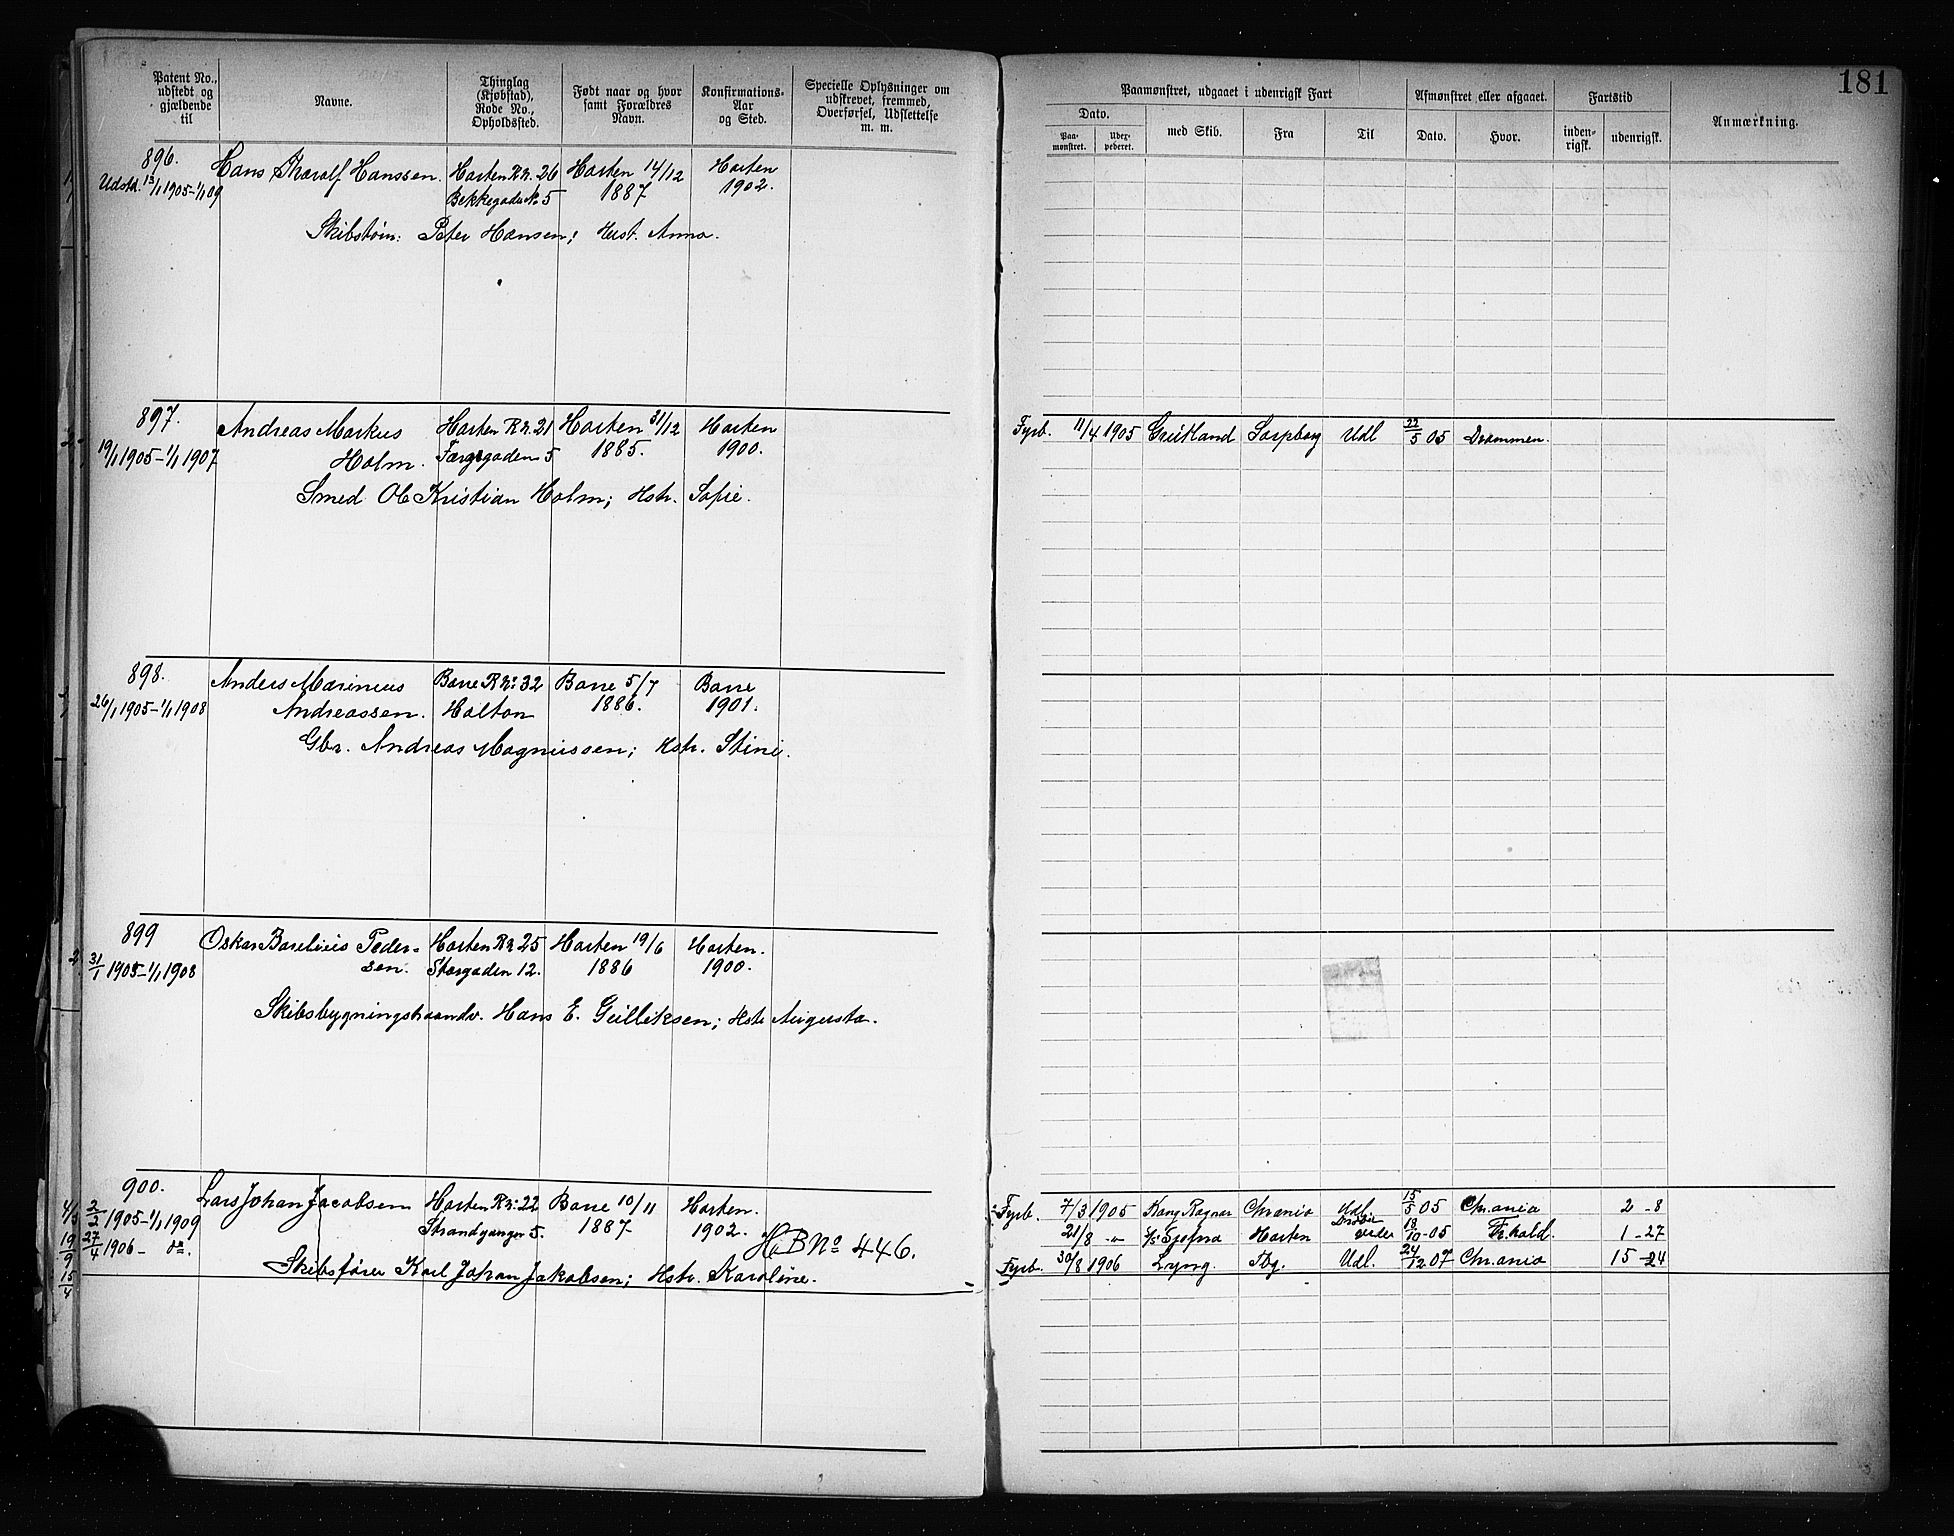 181
Patent No., udstedt og gjældende til
Navne.
Thinglag (Kjøbstad), Rode No., Opholdssted.
Født naar og hvor samt Forældres Navn.
Konfirmations-Aar og Sted.
Specielle Oplysninger om udskrevet, fremmed, Overførsel, Udslettelse m. m.
Paamønstret, udgaaet i udenrigsk Fart
Afmønstret eller afgaaet.
Fartstid
Anmærkning.
Dato.
Paa-mønstret.
Udex-pederet.
med Skib.
Fra
Til
Dato.
Hvor.
inden-rigsk.
udenrigsk.
896. Hans Thoralf Hanssen. Horten R.N. 26 Horten 14/12 Horten
Udstd. 13/1 1905-1/1 09 Bekkegaden No 5 1887 1902.
Skibstøm: Peter Hansen; Hust. Anna.
897. Andreas Markus Horten R.N. 21 Horten 31/12 Horten
19/1 1905-1/1 1907 Holm. Færgegaden 5 1885. 1900.
Smed Ole Kristian Holm; Hstr. Sofie.
Fyrb. 11/4 1905 Sarpborg Udl 22/5 05 Drammen.
898. Anders Marinius Borre R.N: 32 Borre 5/7 Borre
26/1 1905-1/1 1908 Andreassen. Holtan 1886. 1901.
Gbr. Andreas Magnussen; Hstr. Stine.
899 Oskar Peder- Horten R.N 25 Horten 19/6 Horten.
31/1 1905-1/1 1908 sen. Storgaden 12. 1886 1900.
Skibsbygningshaandv. Hans E. Gulliksen; Hstr Augusta.
900. Lars Johan Jacobsen Horten R.N: 22 Borre 10/11 Horten.
2/2 1905-1/1 1909 Strandgangen 5. 1887 1902.
27/4 1906- do. H.B No 446.
Skibsfører Karl Johan Jakobsen; Hstr. Karoline.
4/3
19/9
15/4
Fyrb. 7/3 1905 Kong Ragnar Chrania Udl. 15/5 05 Chr.ania 2-8
21/8 -"- Horten 18/10-05 Fr.hald. 1-27
Fyrb. 30/8 1906 Lyng. Tbg. Udl. 24/12 07 Chr.ania 15-24